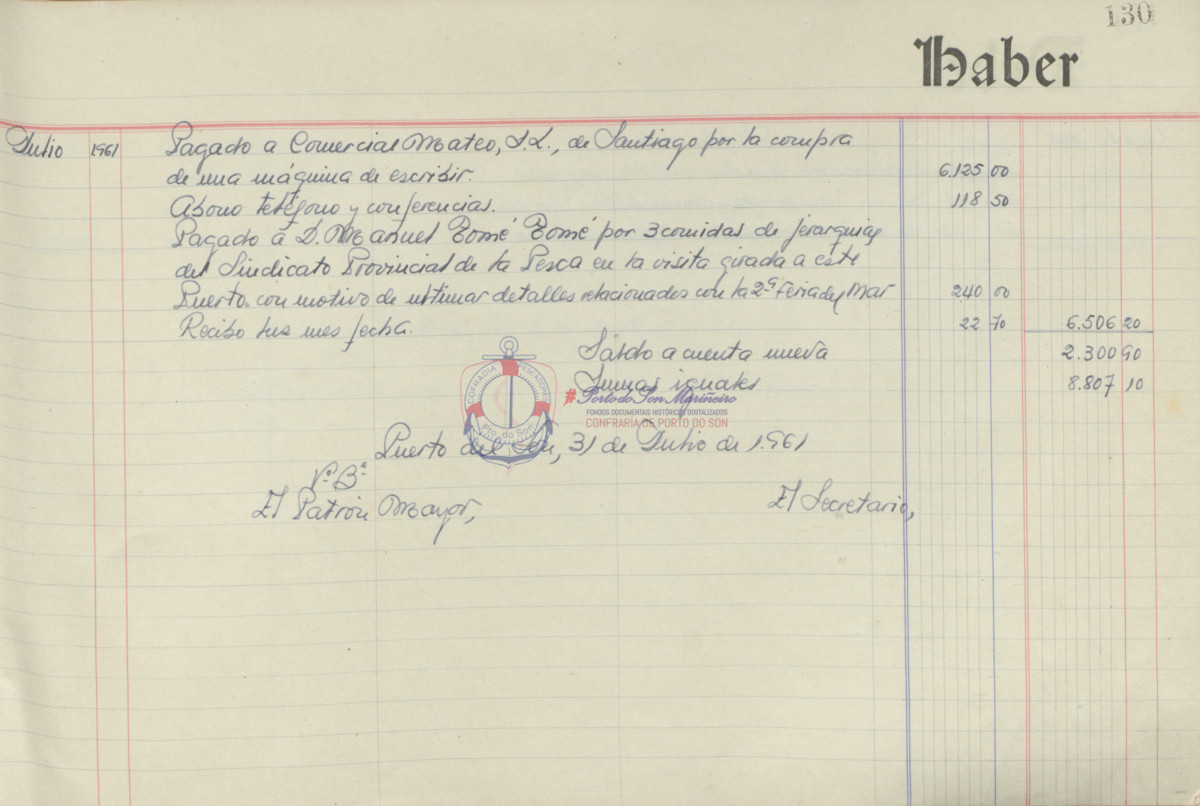 130
Haber
Julio 1961 Pagado a Comercial Mateo, S.L., de Santiago por la compra
de una máquina de escribir. 6.125 00
Abono teléfono y conferencias. 118 50
Pagado a D. Manuel Tomé Tomé por 3 comidas de jerarquias
del Sindicato Provincial de la Pesca en la visita girada a este
Puerto con motivo de ultimar detalles relacionados con la 2ª Feria del Mar 240 00
Recibo luz mes fecha. 22 70 6.506 20
Saldo a cuenta nueva 2.300 90
Sumas iguales 8.807 10
COFRADIA PESCADORES
Pto. do Son
#PortodoSonMariñeiro
FONDOS DOCUMENTAIS HISTÓRICOS DIXITALIZADOS
CONFRARÍA DE PORTO DO SON
Puerto del Son, 31 de Julio de 1.961
Vº Bº
El Patrón Mayor, El Secretario,